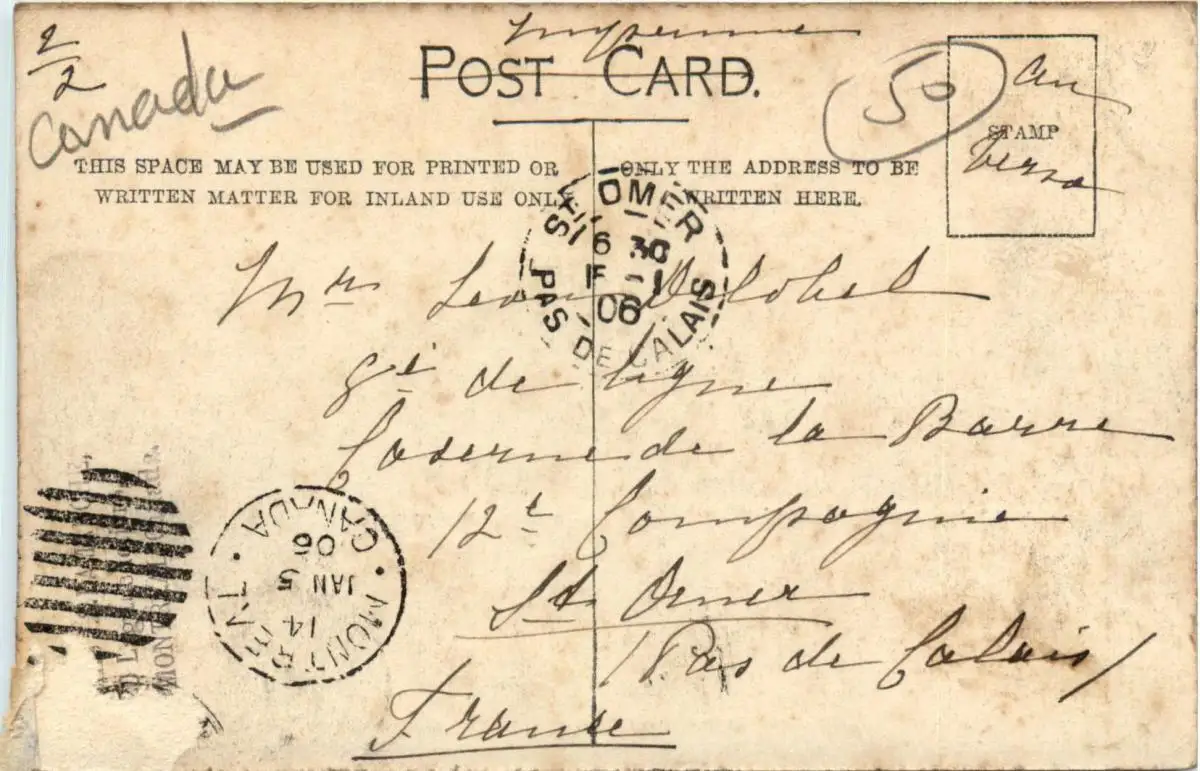 2/2
Canada
Imprimé
POST CARD.
50
au
STAMP
verso
THIS SPACE MAY BE USED FOR PRINTED OR
WRITTEN MATTER FOR INLAND USE ONLY
ONLY THE ADDRESS TO BE
WRITTEN HERE.
ST OMER
6 30
F 1
06
PAS DE CALAIS
Mr Leon Delobel
8e de ligne
Caserne de la Barre
12e Compagnie
St Omer
(Pas de Calais)
France
MONTREAL • CANADA •
14
JAN 5
06